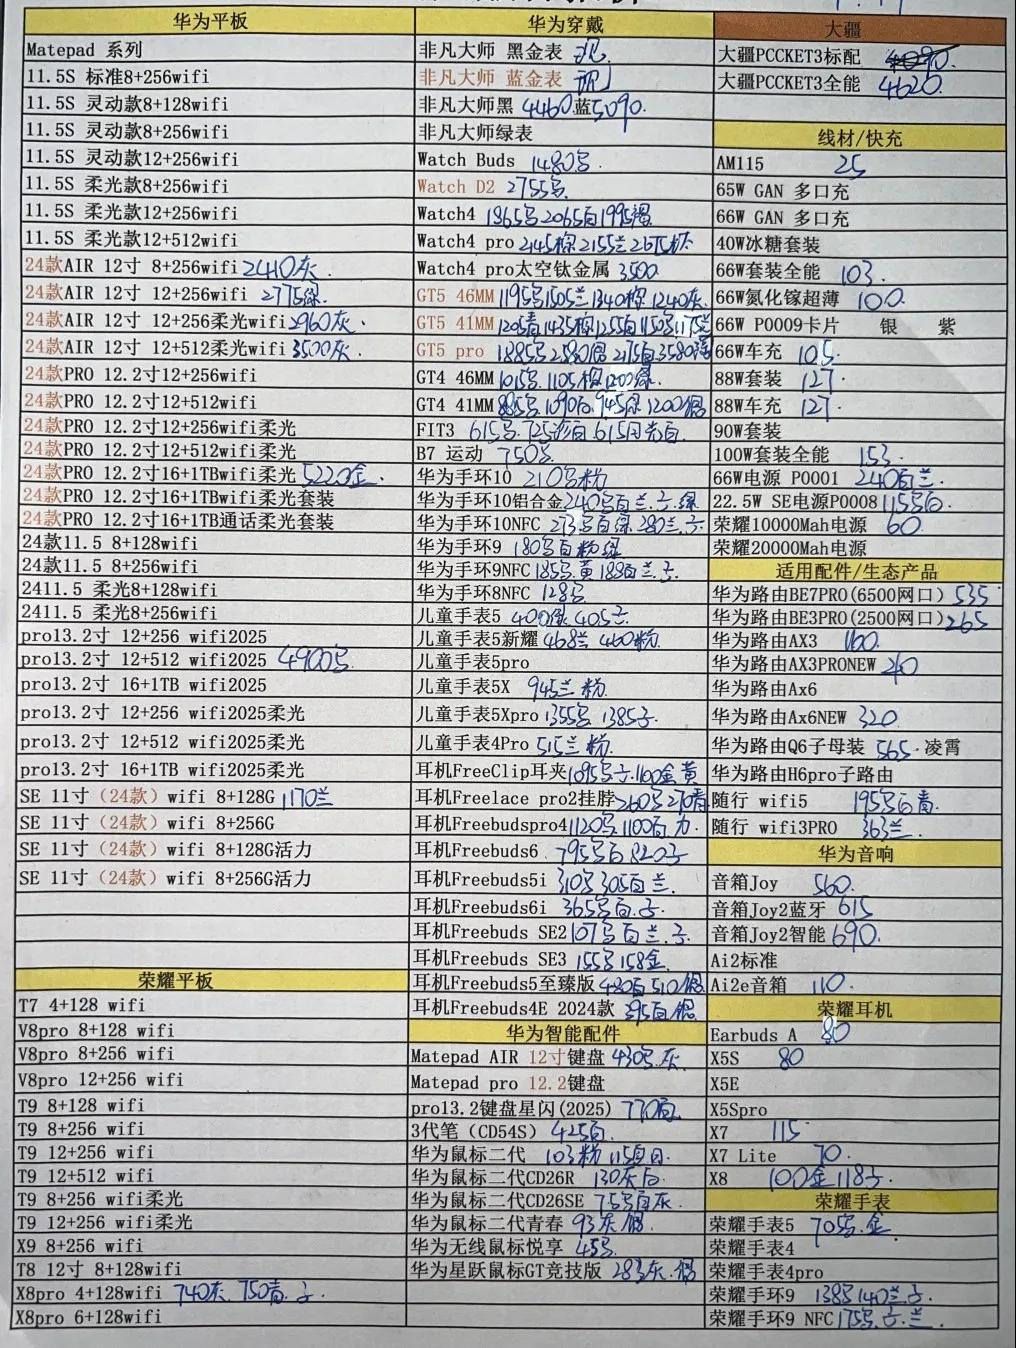 华为平板
Matepad 系列
11.5S 标准8+256wifi
11.5S 灵动款8+128wifi
11.5S 灵动款8+256wifi
11.5S 灵动款12+256wifi
11.5S 柔光款8+256wifi
11.5S 柔光款12+256wifi
11.5S 柔光款12+512wifi
24款AIR 12寸 8+256wifi 2410灰.
24款AIR 12寸 12+256wifi 2775绿.
24款AIR 12寸 12+256柔光wifi 2960灰.
24款AIR 12寸 12+512柔光wifi 3500灰.
24款PRO 12.2寸12+256wifi
24款PRO 12.2寸12+512wifi
24款PRO 12.2寸12+256wifi柔光
24款PRO 12.2寸12+512wifi柔光
24款PRO 12.2寸16+1TBwifi柔光 5220金.
24款PRO 12.2寸16+1TBwifi柔光套装
24款PRO 12.2寸16+1TB通话柔光套装
24款11.5 8+128wifi
24款11.5 8+256wifi
2411.5 柔光8+128wifi
2411.5 柔光8+256wifi
pro13.2寸 12+256 wifi2025
pro13.2寸 12+512 wifi2025 4900
pro13.2寸 16+1TB wifi2025
pro13.2寸 12+256 wifi2025柔光
pro13.2寸 12+512 wifi2025柔光
pro13.2寸 16+1TB wifi2025柔光
SE 11寸（24款）wifi 8+128G 1170兰
SE 11寸（24款）wifi 8+256G
SE 11寸（24款）wifi 8+128G活力
SE 11寸（24款）wifi 8+256G活力
荣耀平板
T7 4+128 wifi
V8pro 8+128 wifi
V8pro 8+256 wifi
V8pro 12+256 wifi
T9 8+128 wifi
T9 8+256 wifi
T9 12+256 wifi
T9 12+512 wifi
T9 8+256 wifi柔光
T9 12+256 wifi柔光
X9 8+256 wifi
T8 12寸 8+128wifi
X8pro 4+128wifi 740灰. 750青.
X8pro 6+128wifi
华为穿戴
非凡大师 黑金表 现
非凡大师 蓝金表 现
非凡大师黑 4460.蓝5090.
非凡大师绿表
Watch Buds 1480
Watch D2 2755
Watch4 1865 2065 1995
Watch4 pro 2145棕 2155兰 2675
Watch4 pro太空钛金属 3500
GT5 46MM 1195 1505兰 1340棕 1240灰.
GT5 41MM 1205青 1435 1255白 1150 1175兰
GT5 pro 1885 2580 2175白 3580
GT4 46MM 1015 1105棕 1200绿.
GT4 41MM 885 1090白 945绿 1200
FIT3 615 725 615
B7 运动 750
华为手环10 210 粉
华为手环10铝合金 240 白兰.
华为手环10NFC 273 白绿 280兰.
华为手环9 180 白粉绿
华为手环9NFC 185 黄 188白兰
华为手环8NFC 128
儿童手表5 400 405
儿童手表5新耀 468兰 460粉.
儿童手表5pro
儿童手表5X 945兰 粉.
儿童手表5Xpro 1355 1385
儿童手表4Pro 515兰 粉.
耳机FreeClip耳夹 1095 1100金黄
耳机Freelace pro2挂脖 260 270青
耳机Freebudspro4 1120 1100白
耳机Freebuds6 795 白 820
耳机Freebuds5i 310 305白兰.
耳机Freebuds6i 365 白.
耳机Freebuds SE2 107 白兰.
耳机Freebuds SE3 155 158金.
耳机Freebuds5至臻版 480白 510
耳机Freebuds4E 2024款 395白
华为智能配件
Matepad AIR 12寸键盘 430 灰.
Matepad pro 12.2键盘
pro13.2键盘星闪(2025) 770
3代笔（CD54S） 425白.
华为鼠标二代 103粉 115
华为鼠标二代CD26R 130灰白
华为鼠标二代CD26SE 75 白灰
华为鼠标二代青春 93灰
华为无线鼠标悦享 45
华为星跃鼠标GT竞技版 283 灰.
大疆
大疆PCCKET3标配
大疆PCCKET3全能 4620.
线材/快充
AM115 25
65W GAN 多口充
66W GAN 多口充
40W冰糖套装
66W套装全能 103.
66W氮化镓超薄 100.
66W P0009卡片 银 紫
66W车充 105.
88W套装 127.
88W车充 127.
90W套装
100W套装全能 153.
66W电源 P0001 240白兰.
22.5W SE电源P0008 115 白.
荣耀10000Mah电源 60.
荣耀20000Mah电源
适用配件/生态产品
华为路由BE7PRO(6500网口) 535
华为路由BE3PRO(2500网口) 265
华为路由AX3 160.
华为路由AX3PRONEW 210
华为路由Ax6
华为路由Ax6NEW 320.
华为路由Q6子母装 565.凌霄
华为路由H6pro子路由
随行 wifi5 195 白青.
随行 wifi3PRO 363兰.
华为音响
音箱Joy 560.
音箱Joy2蓝牙 615
音箱Joy2智能 690.
Ai2标准
Ai2e音箱 110.
荣耀耳机
Earbuds A 80
X5S 80
X5E
X5Spro
X7 115
X7 Lite 70.
X8 100金 118
荣耀手表
荣耀手表5 705 .金.
荣耀手表4
荣耀手表4pro
荣耀手环9 138 140兰.
荣耀手环9 NFC 175 .兰.